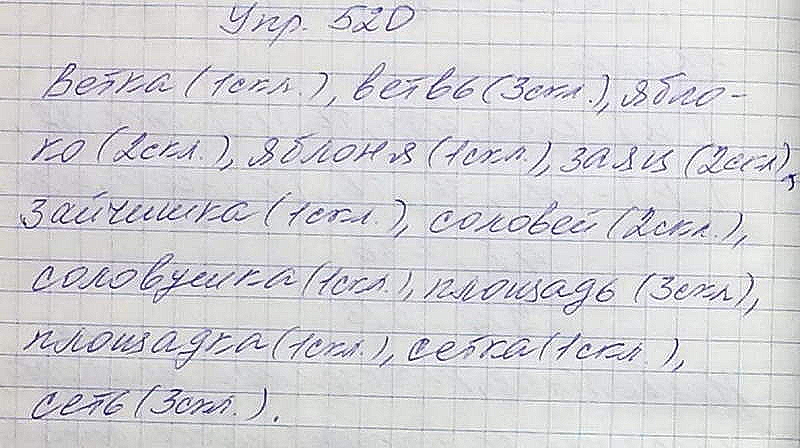 Упр. 520
Ветка (1скл.), ветвь (3скл.), ябло-
ко (2скл.), яблоня (1скл.), заяц (2скл),
зайчишка (1скл.), соловей (2скл.),
соловушка (1скл.), площадь (3скл),
площадка (1скл.), сетка (1скл.),
сеть (3скл.).